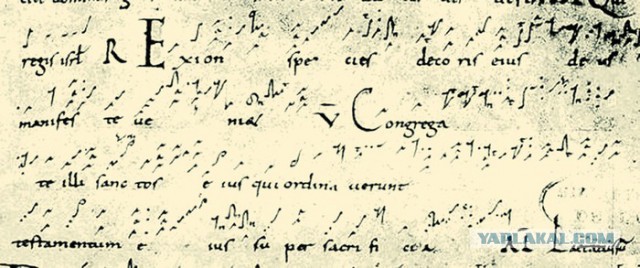 regis isrl R EX ion spe cies deco ris eius de us
manifes te ve niet V Congrega
te illi sanc tos e ius qui ordina verunt
testamentum e ius su per sacri fi cia
YAPLAKAL.COM